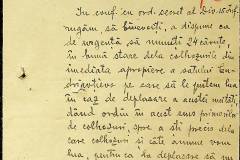 In conf. cu ord. secret al Div. 15 Inf.
rugăm să binevoiți, a dispune ca
de urgență să numiți 24 căruțe,
în bună stare dela colhozurile din
imediata apropiere a satului
pe care să le putem lua
în caz de deplasare a acestei unități,
dând ordin în acest sens primarilor
de colhozuri, spre a ști precis dela
care colhozuri și câte anume vom
lua, pentru ca deplasare să nu